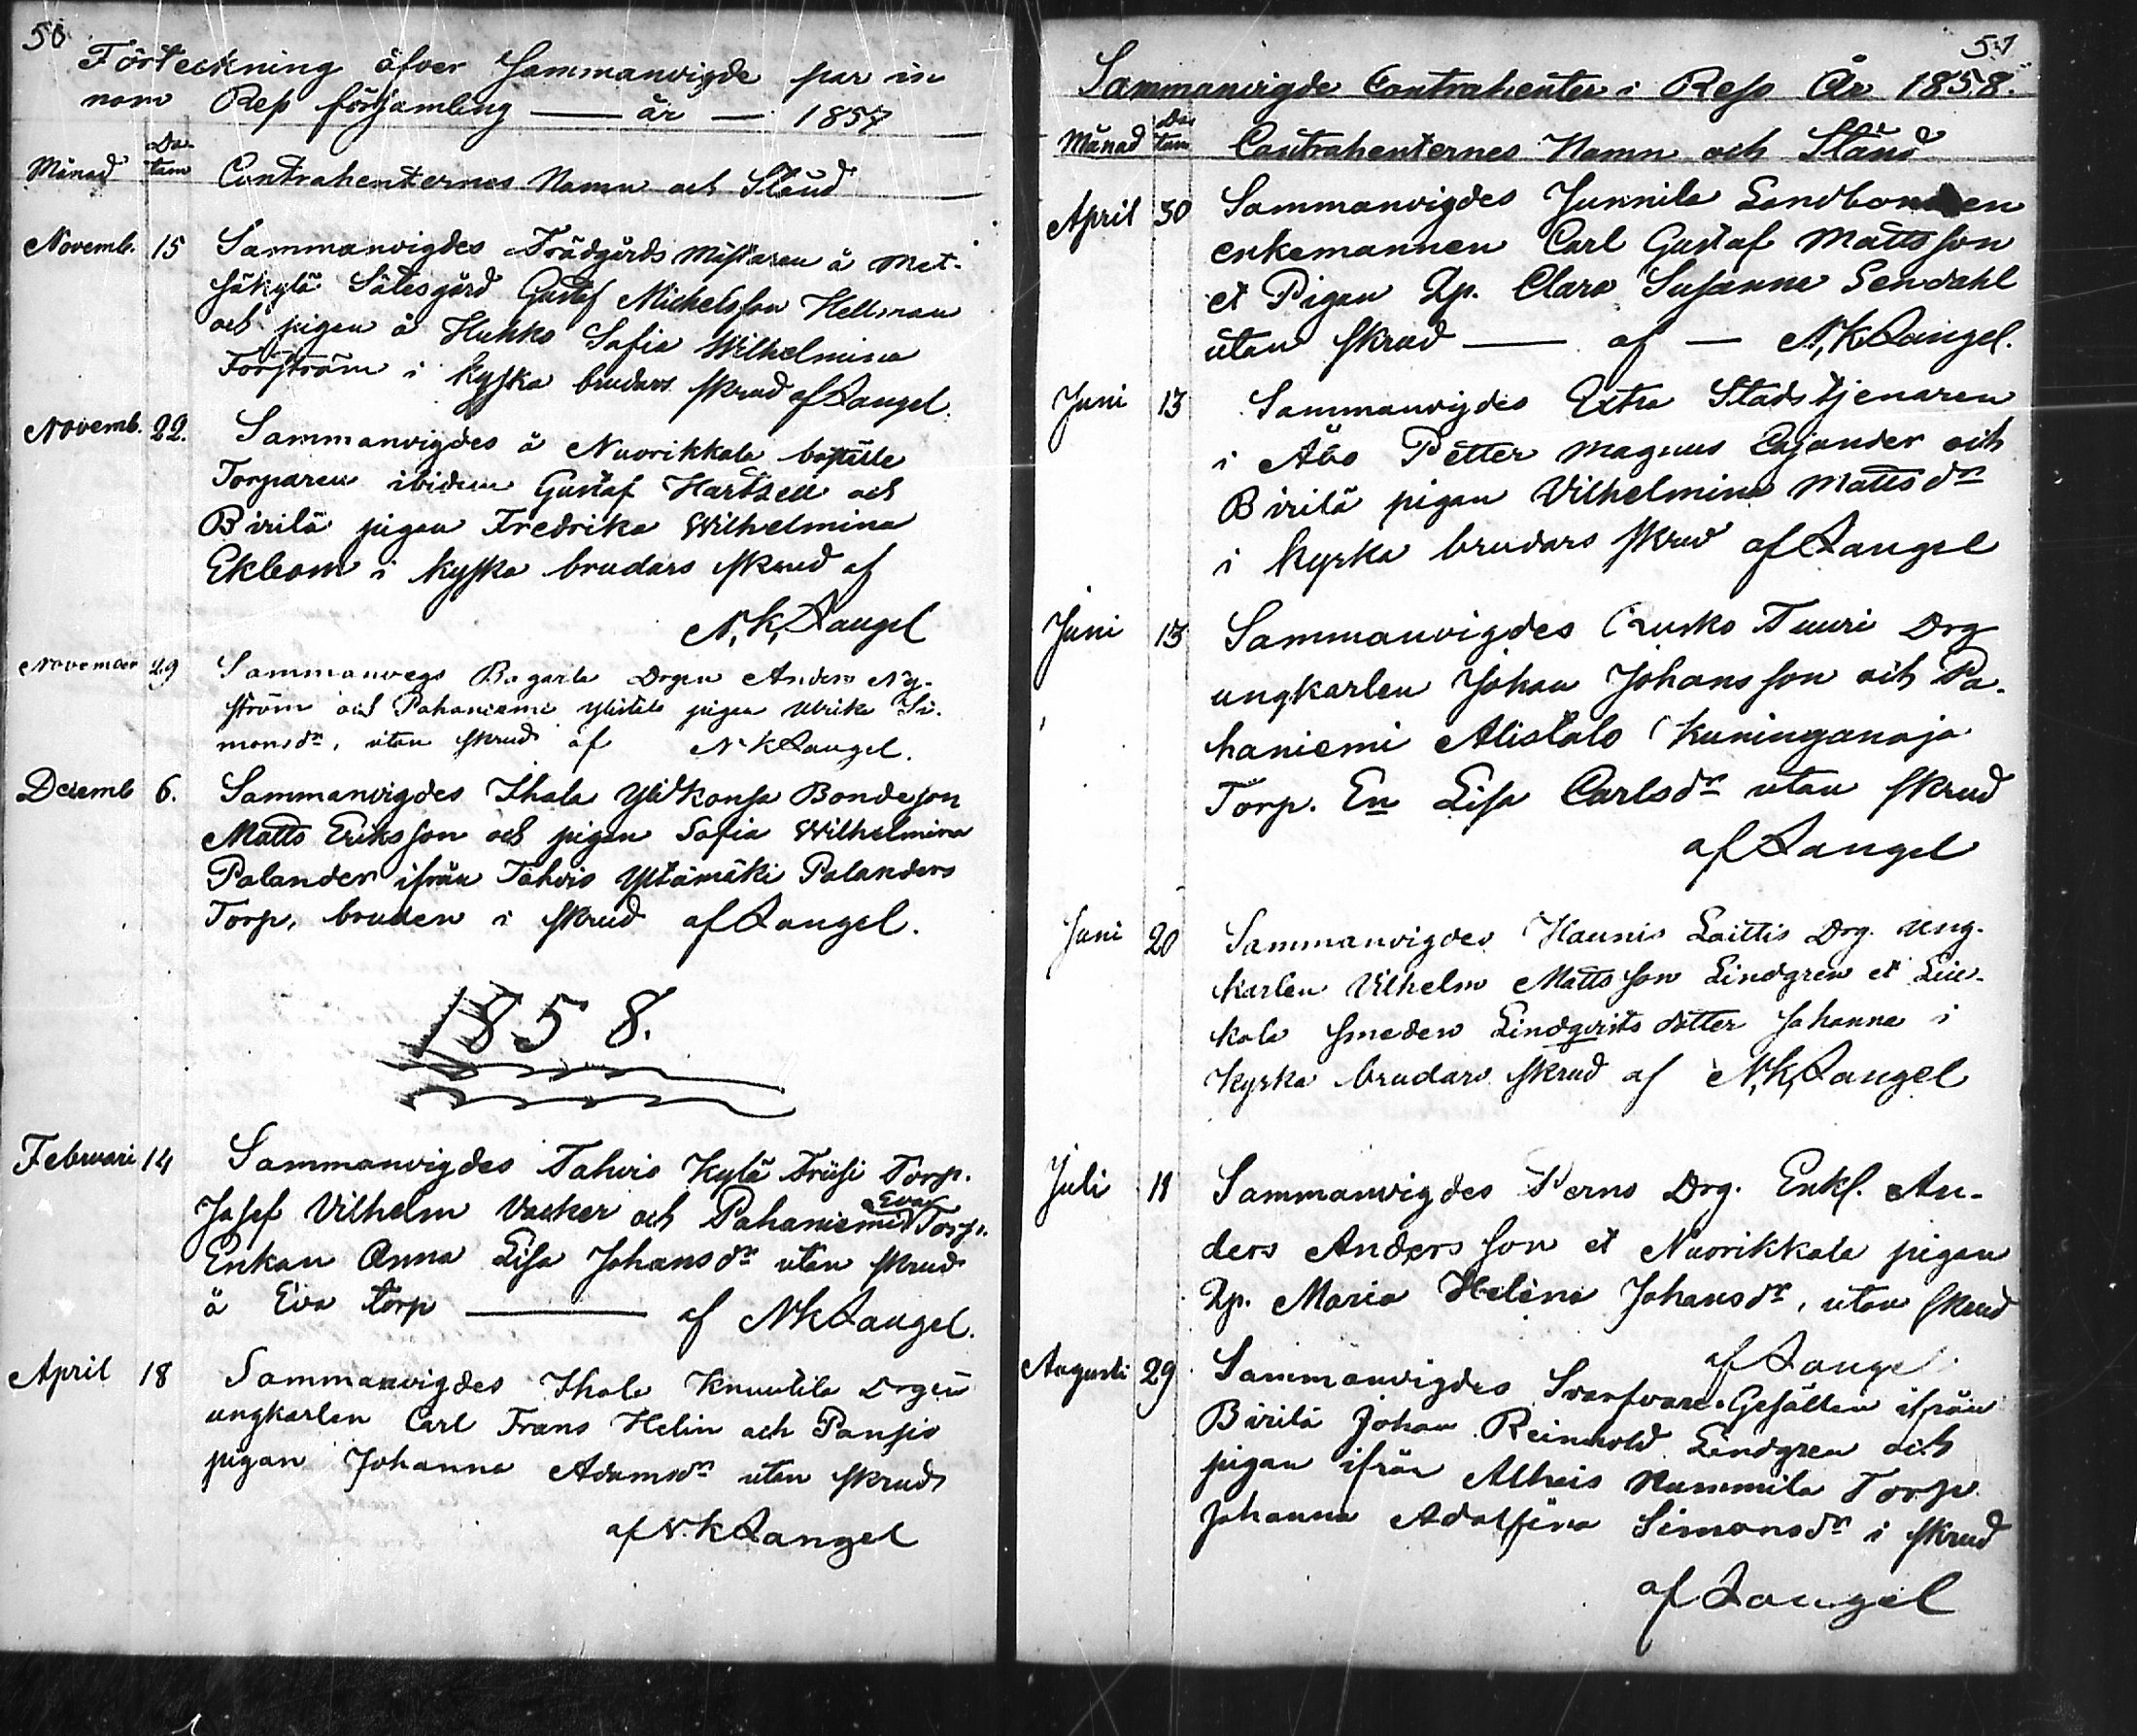 50
Förteckning öfver Sammanvigde par in
nom Reso församling — år — 1857
Månad Datum Contrahenternes Namn och Stånd
Novemb. 15 Sammanvigdes Trädgårds Mästaren å Met-
säkylä Sätesgård Gustaf Michelsson Hellman
och pigan å Huhko Sofia Wilhelmina
Forström i kyska brudars skrud af Rangel.
Novemb. 22. Sammanvigdes å Nuorikkala boställe
Torparen ibidem Gustaf Hartzell och
Birilä pigan Fredrika Wilhelmina
Ekbom i kyska brudars skrud af
N. K. Rangel
November 29 Sammanvegs Bagarla Drgen Anders Ny-
ström och Pahaniemi pigan Ulrika Si-
monsdr, utan skrud af N K Rangel.
Decemb 6. Sammanvigdes Ihala Bondeson
Matts Eriksson och pigan Sofia Wilhelmina
Palander ifrån Tahvis Yltämäki Palanders
Torp, bruden i skrud af Rangel.
1858.
Februari 14 Sammanvigdes Tahvis Kylä Torp.
Josef Vilhelm Vacker och Pahaniemi Eva Torp.
Enkan Anna Lisa Johansdr utan skrud
å Eva torp — af N K Rangel.
April 18 Sammanvigdes Ihala Knuutila Drgen
ungkarlen Carl Frans Helin och Pansio
pigan Johanna Adamsdr utan skrud
af N. K Rangel
51
Sammanvigde Contrahenter i Reso År 1858.
Månad Datum Contrahenternes Namn och Stånd
April 30 Sammanvigdes Junnila Landbonden
enkemannen Carl Gustaf Mattsson
et Pigan Qp. Clara Susanna Sendahl
utan skrud — af — N, K Rangel.
Juni 13 Sammanvigdes Extra Stadstjenaren
i Åbo Petter Magnus Cajander och
Birilä pigan Vilhelmina Mattsdr
i kyska brudars skrud af Rangel
Juni 13 Sammanvigdes Rusko Tuuri Drg
ungkarlen Johan Johansson och Pa-
haniemi Alistalo Kuninganoja
Torp. En Lisa Carlsdr utan skrud
af Rangel
Juni 20 Sammanvigdes Kaunis Laittis Drg. ung-
karlen Vilhelm Mattsson Lindgren et Lie-
kola smeden Lindqvists dotter Johanna i
kyska brudars skrud af N, K, Rangel
Juli 11 Sammanvigdes Perno Drg. Enkl. An-
ders Andersson et Nuorikkala pigan
Qp. Maria Helena Johansdr, utan skrud
af Rangel.
Augusti 29 Sammanvigdes Svarfvare-Gesällen ifrån
Birilä Johan Reinhold Lindgren och
pigan ifrån Alhais Nummila Torp
Johanna Adolfina Simonsdr i skrud
af Rangel